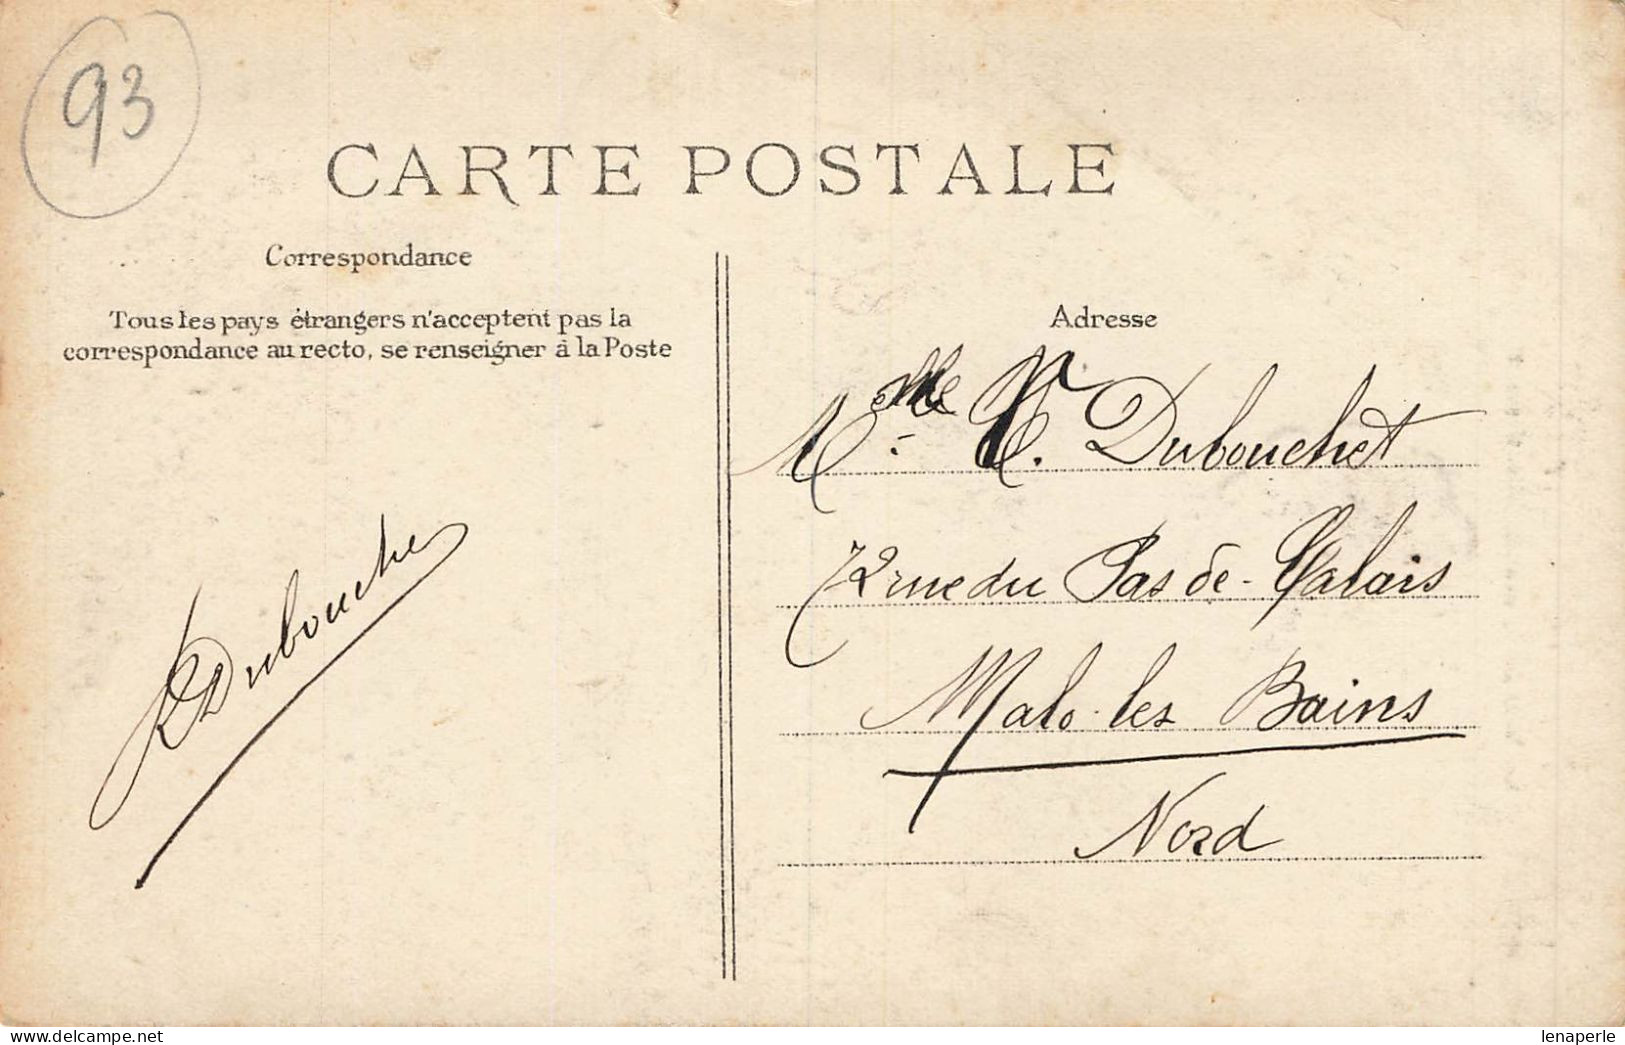 93
CARTE POSTALE
Correspondance
Tous les pays étrangers n'acceptent pas la
correspondance au recto, se renseigner à la Poste
Dubouchet
Adresse
Melle V. Dubouchet
72 rue du Pas de-Calais
Malo-les Bains
Nord
www.delcampe.net
lenaperle